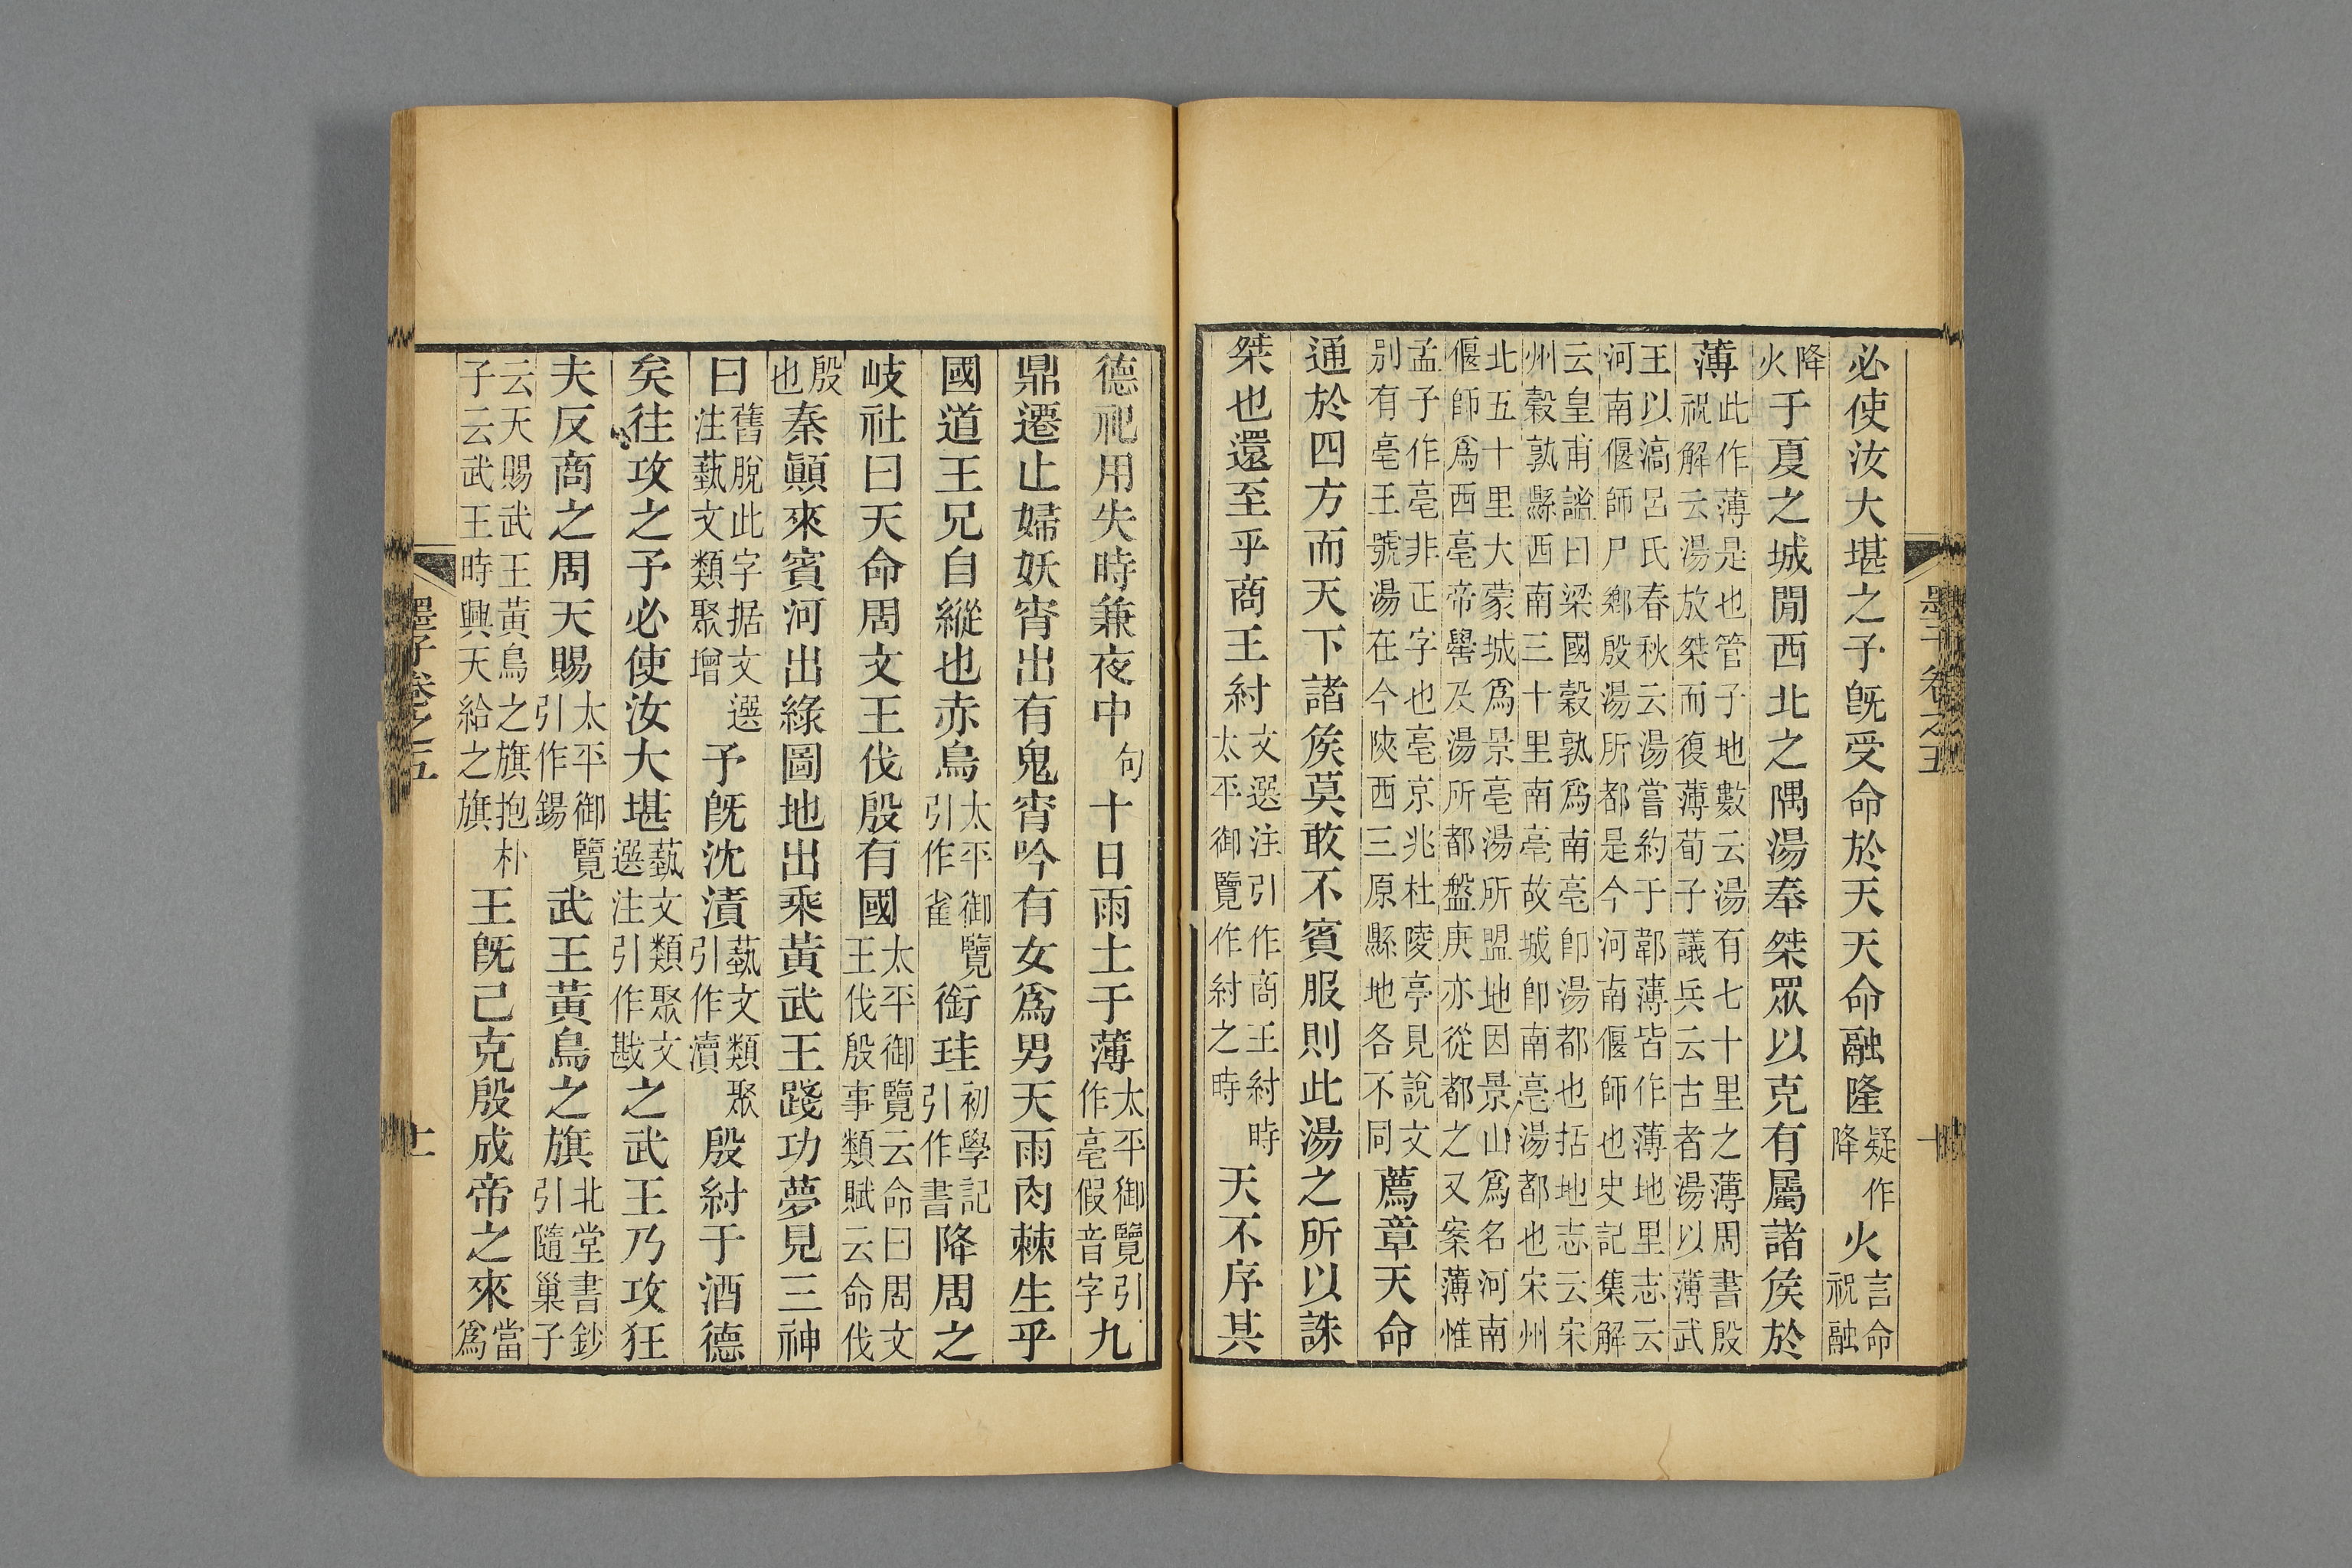 必使汝大堪之子旣受命於天天命融隆疑作降火言命祝融
降火于夏之城閒西北之隅湯奉桀眾以克有屬諸矦於
薄此作薄是也管子地數云湯有七十里之薄周書殷祝解云湯放桀而復薄荀子議兵云古者湯以薄武
王以滈呂氏春秋云湯嘗約于郼薄皆作薄地里志云河南偃師尸鄉殷湯所都是今河南偃師也史記集解
云皇甫謐曰梁國穀孰爲南亳卽湯都也括地志云宋州穀孰縣西南三十里南亳故城卽南亳湯都也宋州
北五十里大蒙城爲景亳湯所盟地因景山爲名河南偃師爲西亳帝嚳及湯所都盤庚亦從都之又案薄惟
孟子作亳非正字也亳京兆杜陵亭見說文別有亳王號湯在今陝西三原縣地各不同薦章天命
通於四方而天下諸矦莫敢不賓服則此湯之所以誅
桀也還至乎商王紂文選注引作商王紂時太平御覽作紂之時天不序其
德祀用失時兼夜中句十日雨土于薄太平御覽引作亳假音字九
鼎遷止婦妖宵出有鬼宵吟有女爲男天雨肉棘生乎
國道王兄自縱也赤烏太平御覽引作雀銜珪初學記引作書降周之
岐社曰天命周文王伐殷有國太平御覽云命曰周文王伐殷事類賦云命伐
殷也秦顚來賓河出綠圖地出乘黃武王踐功夢見三神
曰舊脫此字据文選注藝文類聚增予旣沈漬藝文類聚引作瀆殷紂于酒德
矣往攻之予必使汝大堪藝文類聚文選注引作戡之武王乃攻狂
夫反商之周天賜太平御覽引作錫武王黃鳥之旗北堂書鈔引隨巢子
云天賜武王黃鳥之旗抱朴子云武王時興天給之旗王旣已克殷成帝之來當爲
墨子卷之五